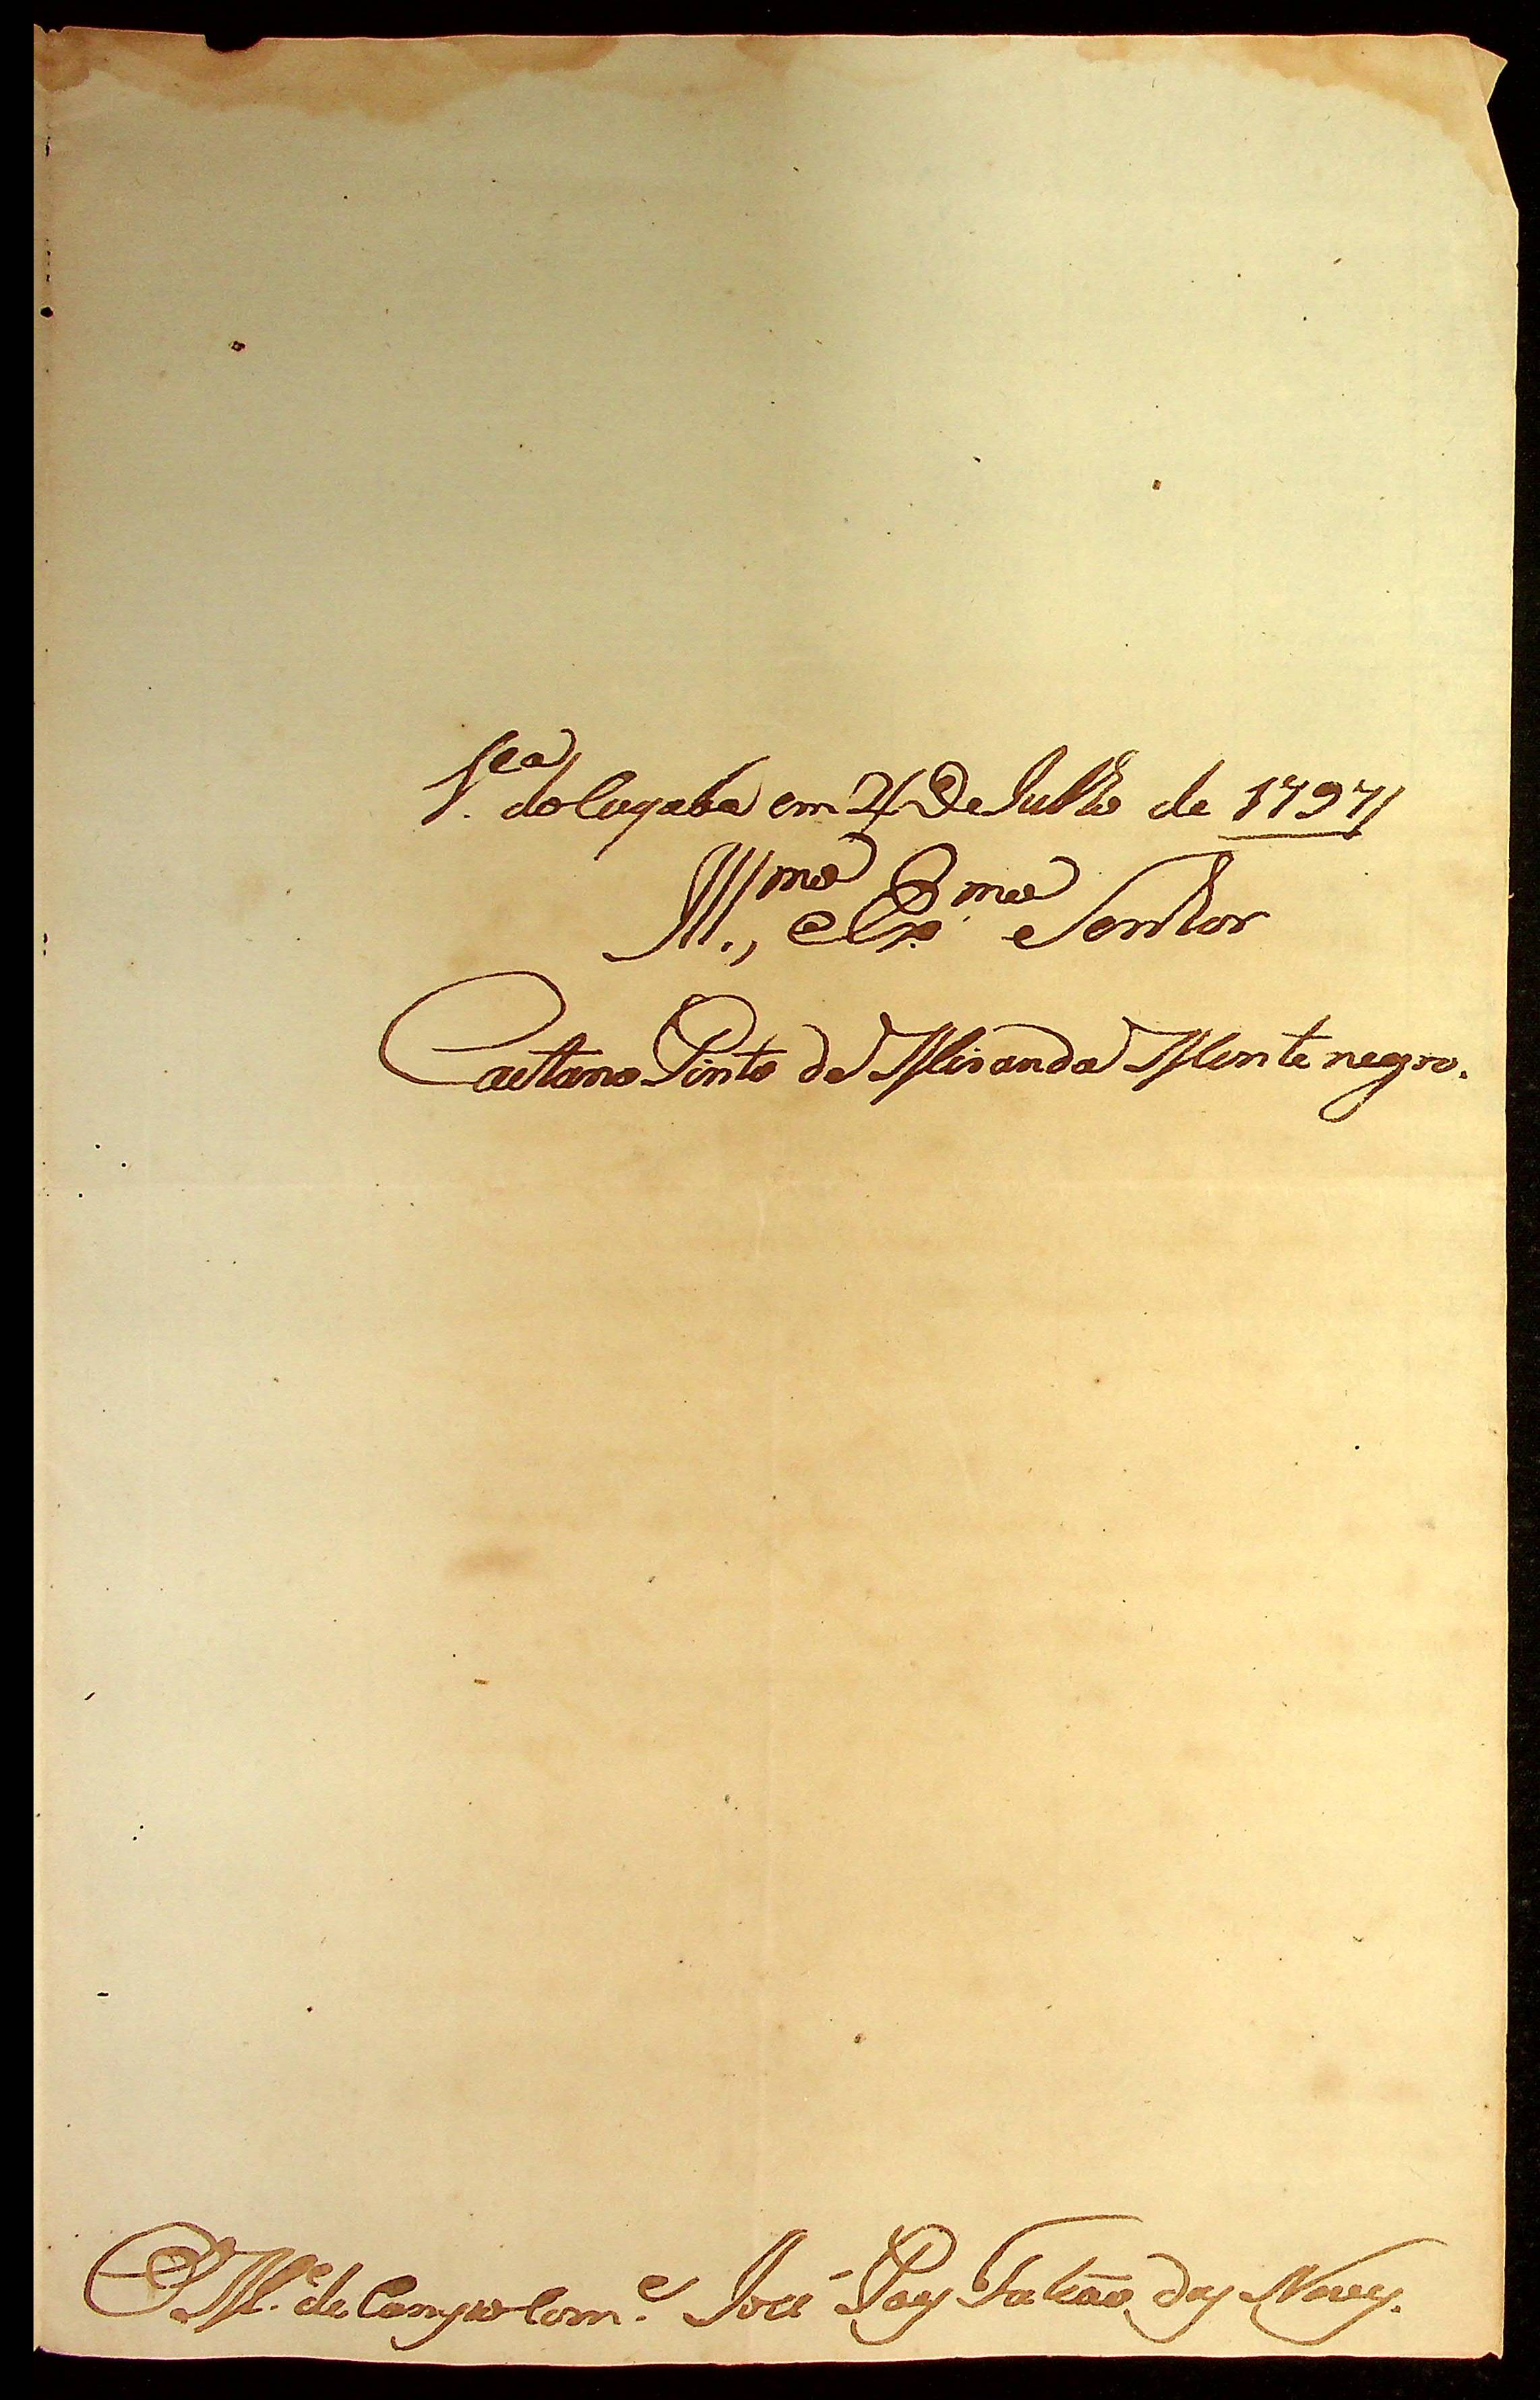 V.ª do Cuyabá em 4 De Julho de 1797//
Ill.mo, e Ex.mo Senhor
Caetano Pinto de Miranda Montenegro.
O M.e de Campo Com.e José Paes Falcão das Neves.